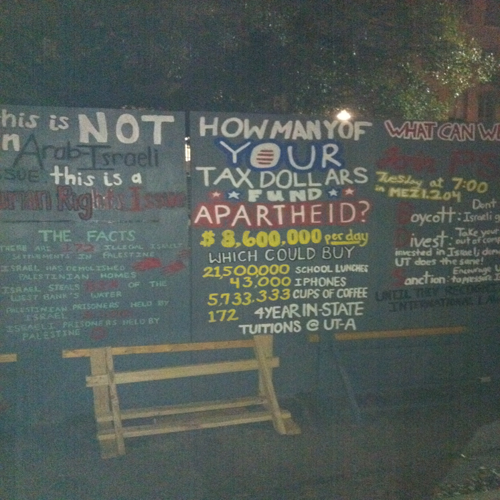 this is NOT
an Arab-Israeli
ISSUE this is a
Human Rights Issue
THE FACTS
THERE ARE ILLEGAL ISRAELI
SETTLEMENTS IN PALESTINE
ISRAEL HAS DEMOLISHED
PALESTINIAN HOMES
ISRAEL STEALS OF THE
WEST BANK'S WATER
PALESTINIAN PRISONERS HELD BY
ISRAEL
ISRAELI PRISONERS HELD BY
PALESTINE
HOW MANY OF
YOUR
TAX DOLLARS
FUND
APARTHEID?
$8,600,000 per day
WHICH COULD BUY
21,500,000 SCHOOL LUNCHES
43,000 IPHONES
5,733,333 CUPS OF COFFEE
172 4 YEAR IN-STATE
TUITIONS @ UT-A
WHAT CAN WE
Tuesday at 7:00
in MEZ 1.204
Boycott: Don't
Israeli g
Divest: Take your
out of co
invested in Israel, don
UT does the same!
Sanction: Encourage
UNTIL THEY
INTERNATIONAL LA